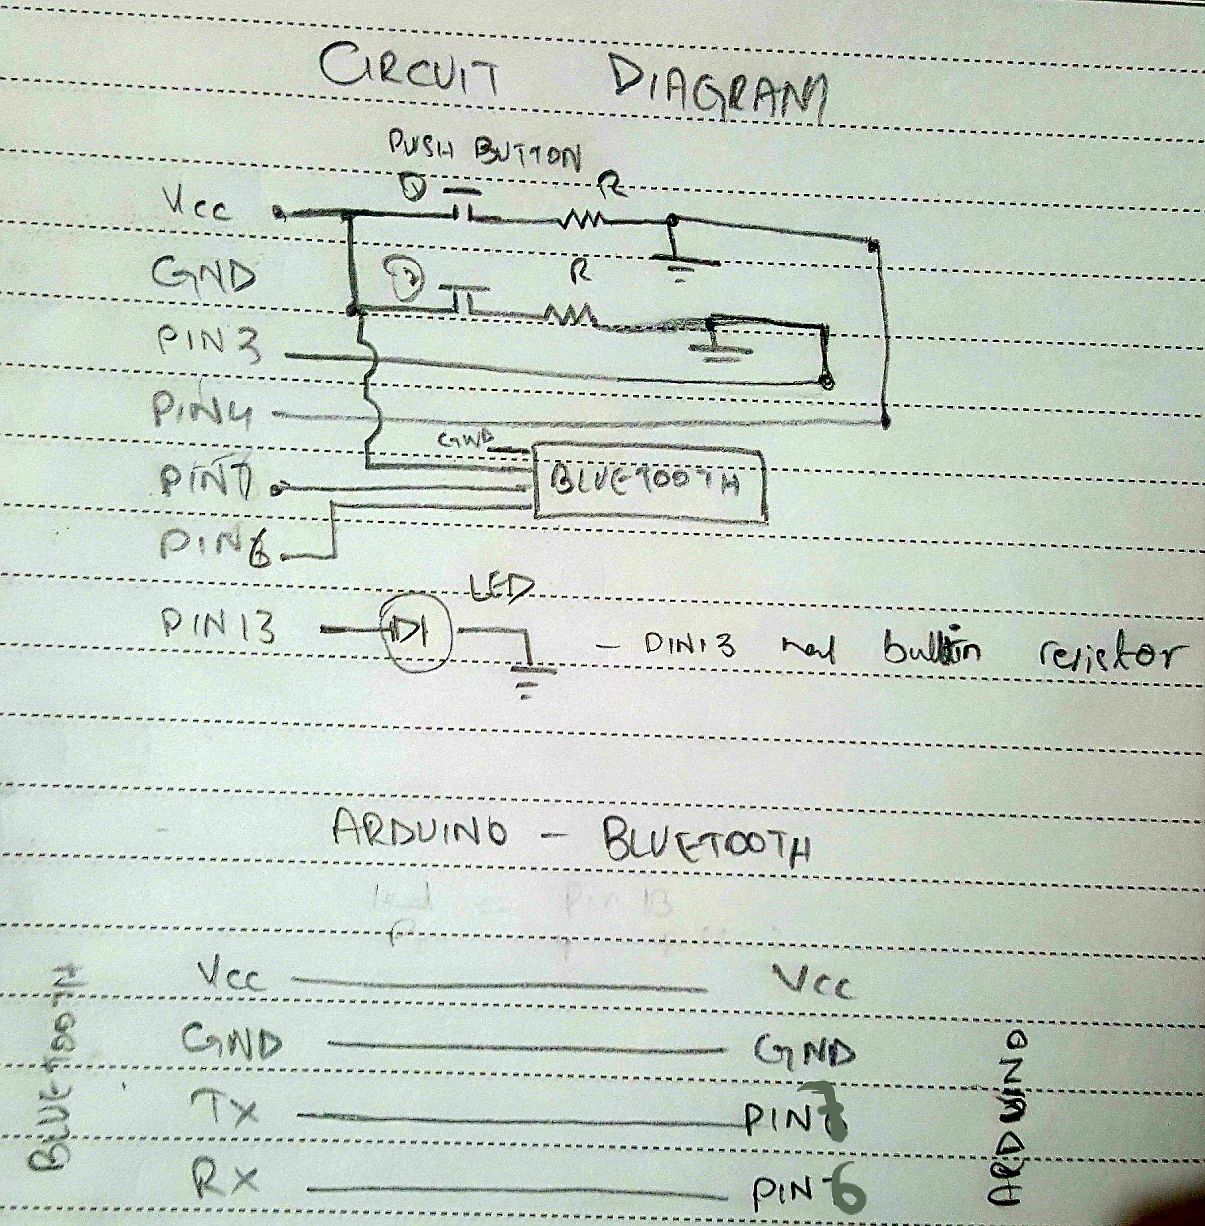 CIRCUIT DIAGRAM
PUSH BUTTON
Vcc ① R
GND ② R
PIN3
PIN4
GND
PIN7 BLUETOOTH
PIN6
LED
PIN 13 - PIN13 builtin resistor
ARDUINO - BLUETOOTH
led = Pin 13
BLUETOOTH
Vcc Vcc
GND GND
TX PIN7
RX PIN6
ARDUINO